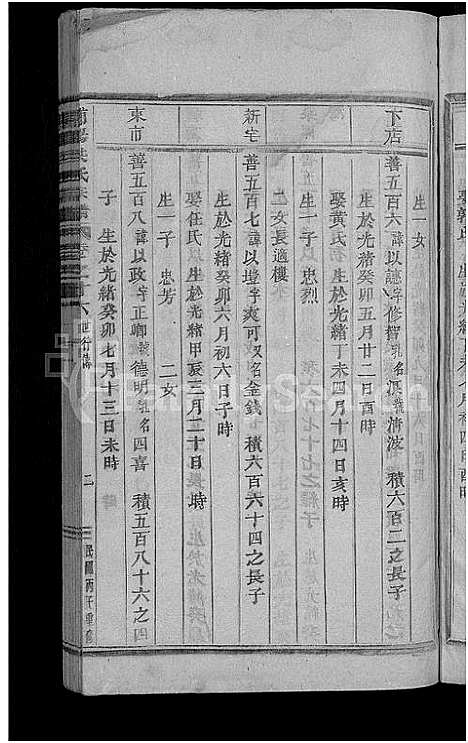 生一女
下店
善五百六諱以譓字修智乳名淇號清波 積六百二之長子
生於光緒癸卯五月廿二日酉時
娶黃氏 生於光緒丁未四月十四日亥時
生一子 忠烈
二女長適樓
新宅
善五百七諱以塏字爽可又名金錢 積六百六十四之長子
生於光緒癸卯六月初六日子時
娶任氏 生於光緒甲辰三月二十日 時
生一子 忠芳 二女
東市
善五百八諱以政字正卿號德明乳名四喜 積五百八十六之四
子 生於光緒癸卯七月十三日未時
世行傳
二